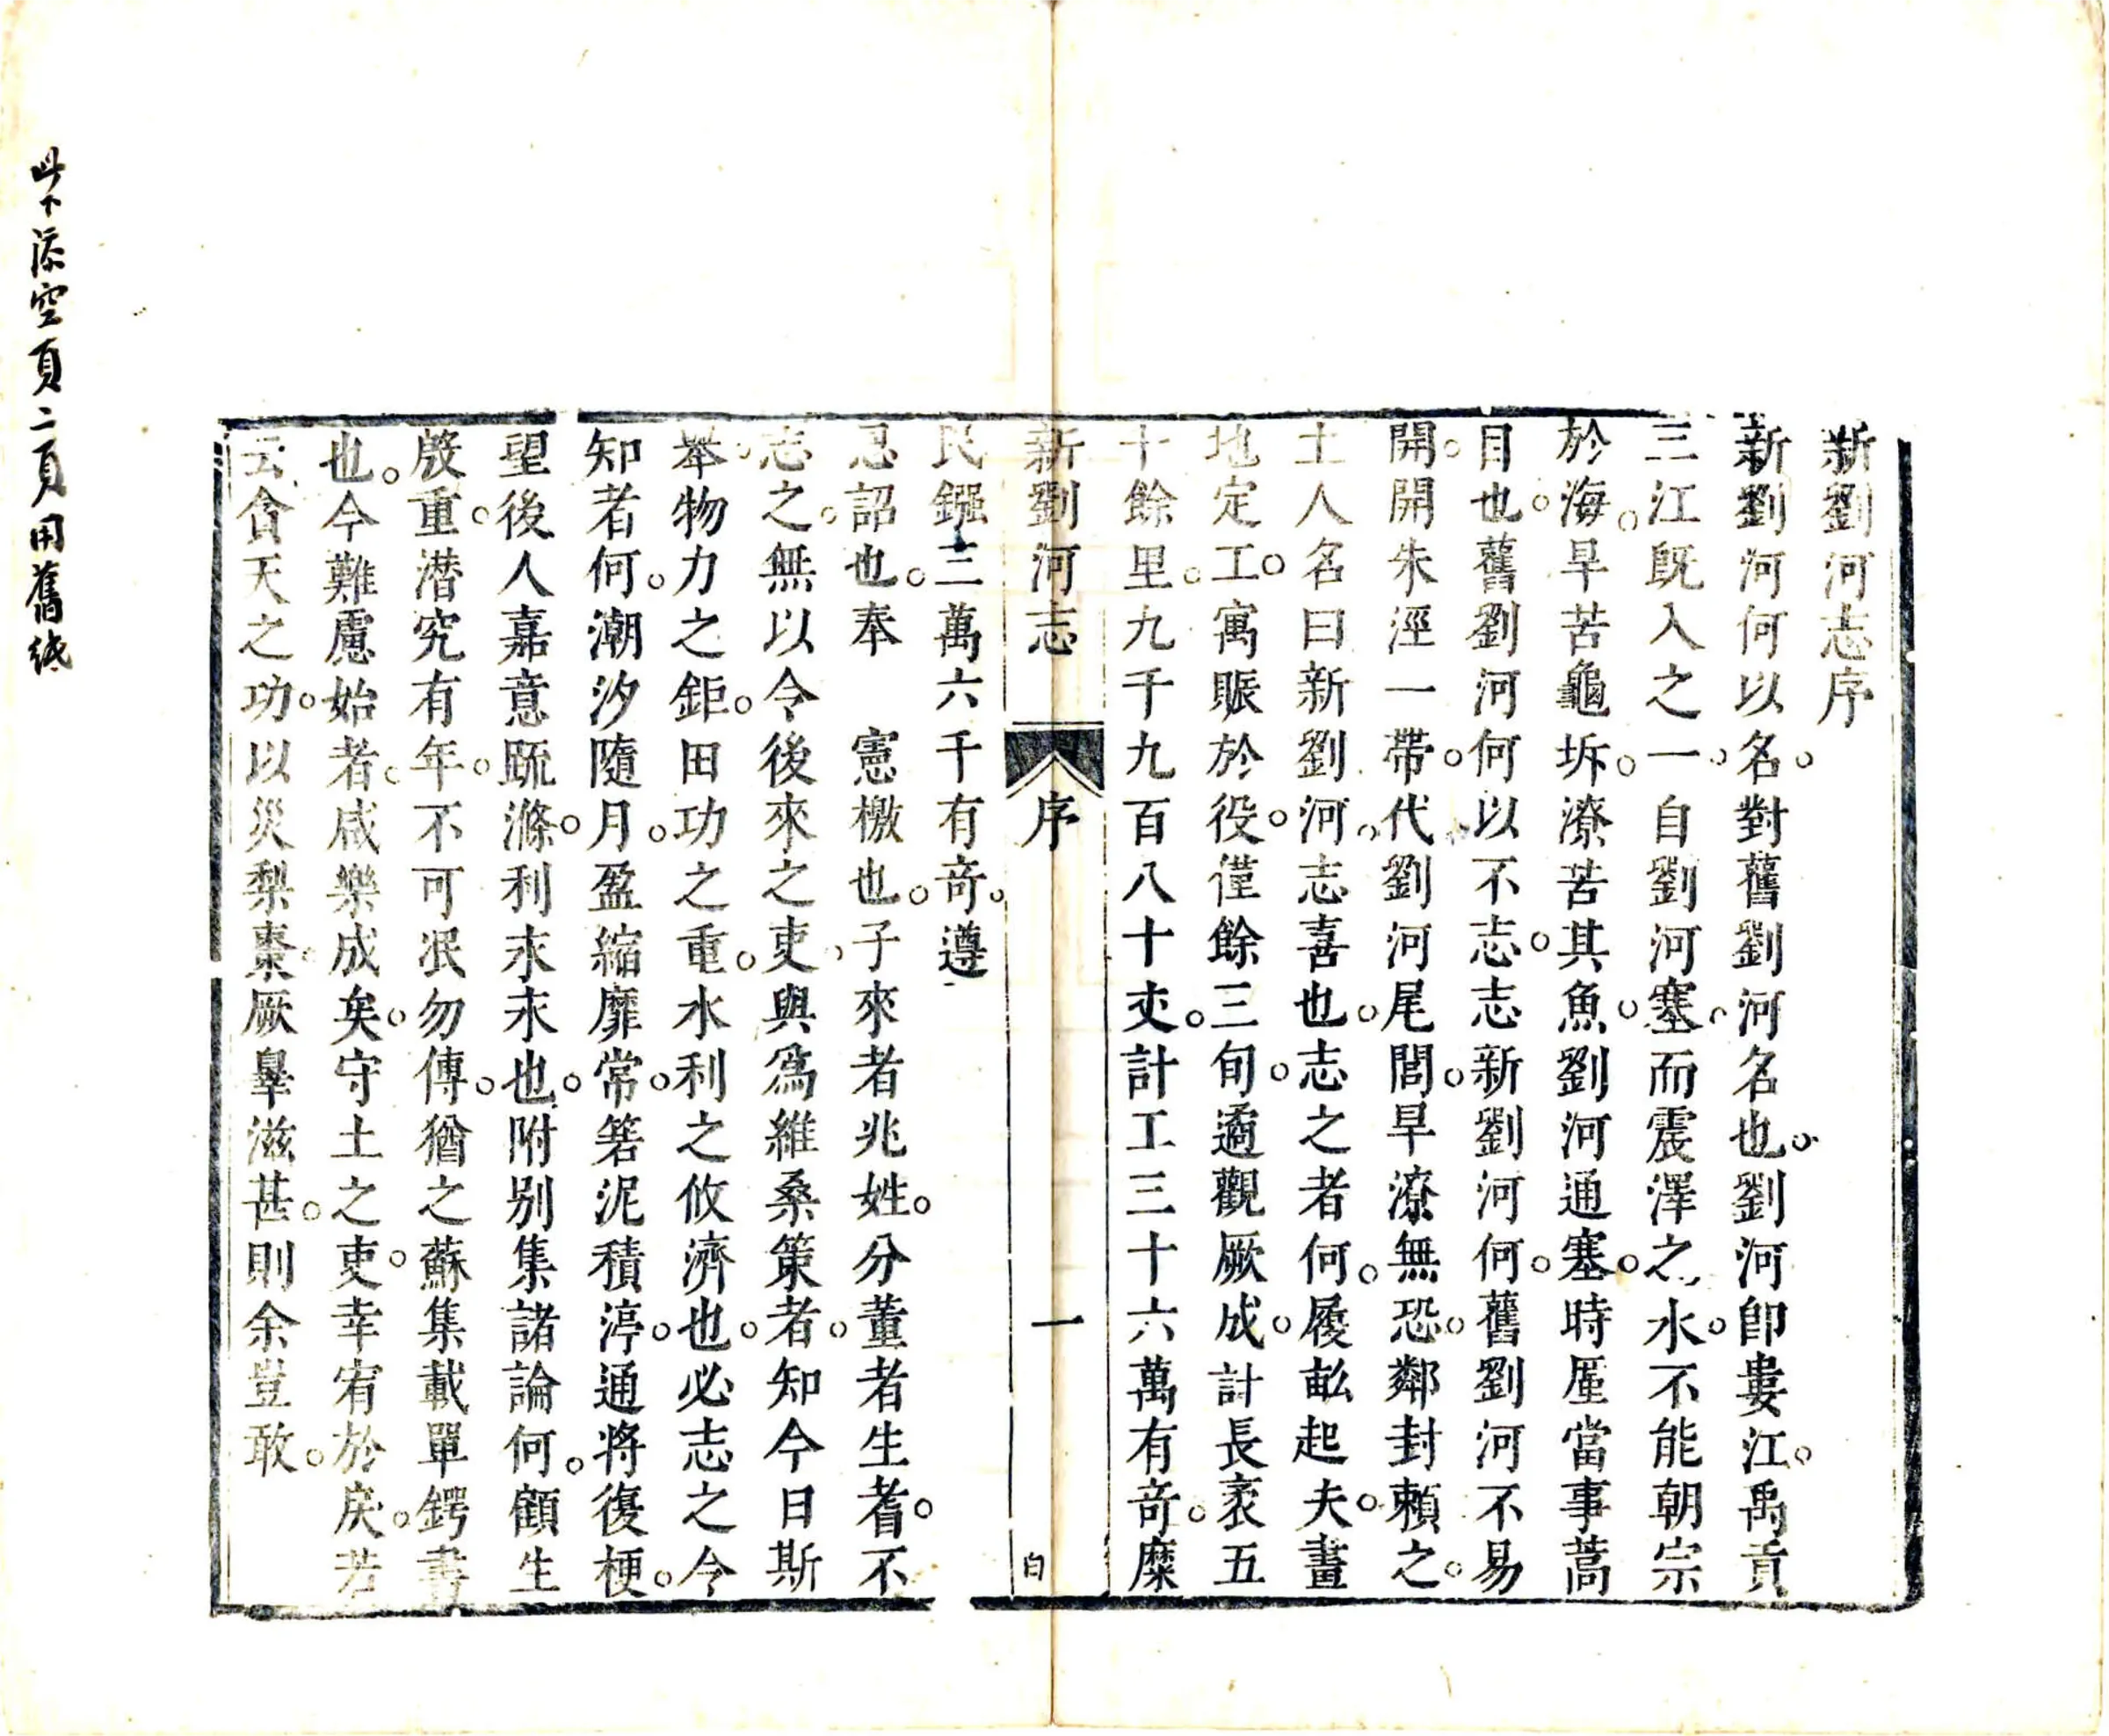 新劉河志序
新劉河何以名。對舊劉河名也。劉河卽婁江。禹貢
三江旣入之一。自劉河塞。而震澤之水。不能朝宗
於海。旱苦龜坼。潦苦其魚。劉河通塞。時厪當事蒿
目也。舊劉河何以不志。志新劉河何。舊劉河不易
開。開朱涇一帶。代劉河尾閭。旱潦無恐。鄰封賴之。
土人名曰新劉河。志喜也。志之者何。履畝起夫。畫
地定工。寓賑於役。僅餘三旬。遹觀厥成。計長袤五
十餘里。九千九百八十丈。計工三十六萬有奇。糜
新劉河志 序 一 白
民鏹三萬六千有奇。遵
恩詔也。奉 憲檄也。子來者兆姓。分董者生耆。不
志之。無以令後來之吏。與爲維桑策者。知今日斯
舉。物力之鉅。田功之重。水利之攸濟也。必志之。今
知者何。潮汐隨月。盈縮靡常。箬泥積渟。通將復梗。
望後人嘉意䟽滌。利永永也。附別集諸論何。顧生
殷重。潜究有年。不可泯勿傳。猶之蘇集載單鍔書
也。今難慮始者。咸樂成矣。守土之吏。幸宥於戾。若
云貪天之功。以災梨棗。厥辠滋甚。則余豈敢。
此下添空頁二頁用舊紙